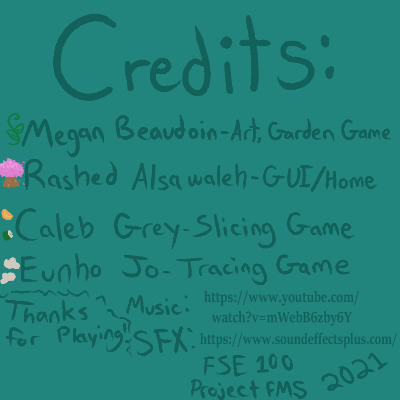 Credits:
Megan Beaudoin-Art, Garden Game
Rashed Alsawaleh-GUI/Home
Caleb Grey-Slicing Game
Eunho Jo-Tracing Game
Thanks for Playing!
Music: https://www.youtube.com/
watch?v=mWebB6zby6Y
SFX: https://www.soundeffectsplus.com/
FSE 100
Project FMS 2021